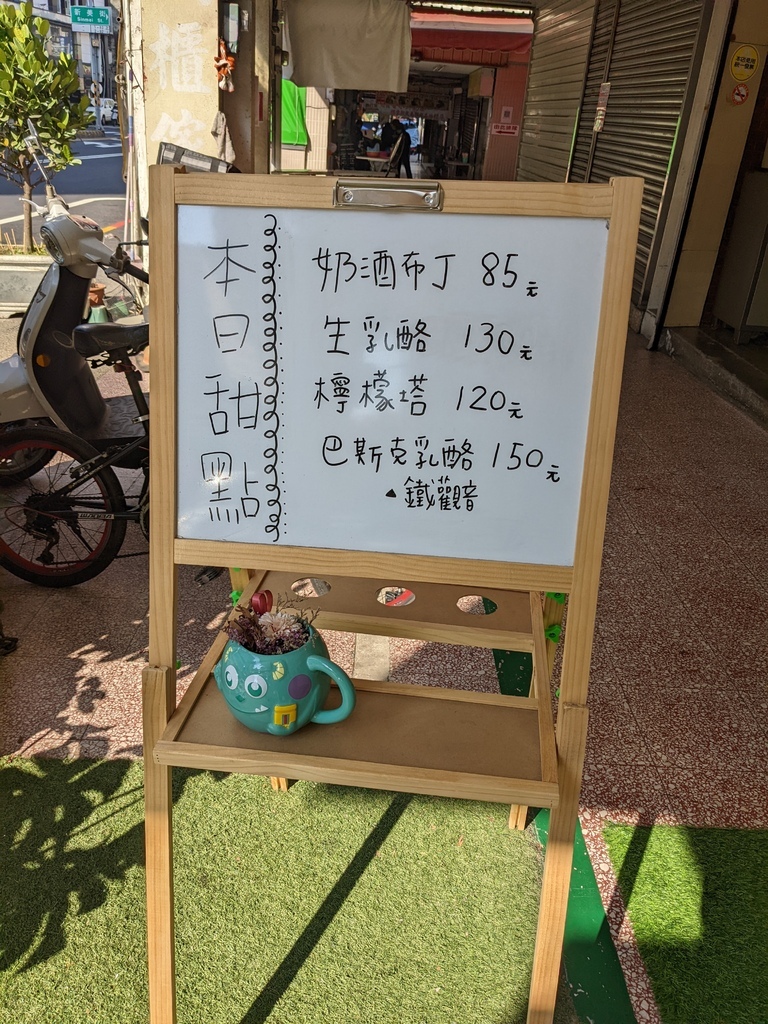 新美街
Sinmei St.
櫃
本日甜點
奶酒布丁 85元
生乳酪 130元
檸檬塔 120元
巴斯克乳酪 150元
▲鐵觀音